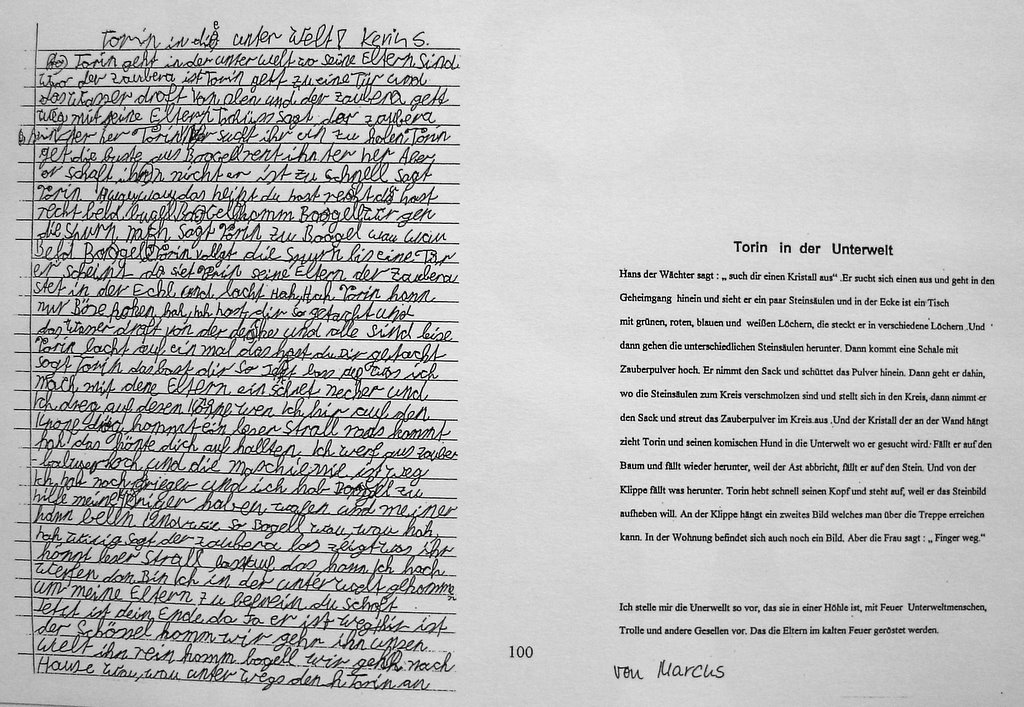 Torin in die unter Welt! Kevin S.
Torin geht in der unter welt wo seine Eltern sind
wo der zaubera ist Torin gett zu eine Tür und
das Wasser droft von olen und der zaubera gett
weg mit seine Eltern Tschüss sagt der zaubera
hinter her Torin sucht ihr ein zu holen Torin
get die buste aus Boogell rent ihn ter her Aber
er schaft ihn nicht er ist zu schnell sagt
Torin das heißt du hast recht du hast
recht Boogell komm Boogell wir gen
die Spurn nach sagt Torin zu Boogel wau wau
Befol Boogel Torin vollgt die Spurn bis eine Tür
er scheint da siet Torin seine Eltern der zaubera
stet in der Eck und lacht Hah, Hah Torin kann
nur Böse hah, hah hast dir so gedacht und
das Wasser draft von der decke und alle sind
Torin lacht auf ein mal das hast du Dir gedacht
sagt Torin das hast dir so was ich
mach mit dene Eltern ein und
Ich dreg auf desen wen Ich hir auf den
Knopf kommt ein leser Strall raus kommt
hah das könte dich auf hallten Ich werf aus zauber
hoch und die maschiene ist weg
Ich hab noch und ich hab Boogell zu
hilfe meine haben wafen und meiner
kann belln so Bogell wau, wau hah,
hah sagt der zaubera los zeigt was ihr
könnt leser Strall das kann Ich hoch
werfen dan Bin Ich in der unter welt gekommen
um meine Eltern zu befrein du schaft
Jetzt ist dein Ende da Ja er ist weg hir ist
der Schlössel komm wir gehn ihn unsen
Welt ihn rein komm bogell wir gehn nach
Hause wau, wau unter wegs den Torin an
100
Torin in der Unterwelt
Hans der Wächter sagt : „ such dir einen Kristall aus“ .Er sucht sich einen aus und geht in den
Geheimgang hinein und sieht er ein paar Steinsäulen und in der Ecke ist ein Tisch
mit grünen, roten, blauen und weißen Löchern, die steckt er in verschiedene Löchern .Und
dann gehen die unterschiedlichen Steinsäulen herunter. Dann kommt eine Schale mit
Zauberpulver hoch. Er nimmt den Sack und schüttet das Pulver hinein. Dann geht er dahin,
wo die Steinsäulen zum Kreis verschmolzen sind und stellt sich in den Kreis, dann nimmt er
den Sack und streut das Zauberpulver im Kreis aus .Und der Kristall der an der Wand hängt
zieht Torin und seinen komischen Hund in die Unterwelt wo er gesucht wird. Fällt er auf den
Baum und fällt wieder herunter, weil der Ast abbricht, fällt er auf den Stein. Und von der
Klippe fällt was herunter. Torin hebt schnell seinen Kopf und steht auf, weil er das Steinbild
aufheben will. An der Klippe hängt ein zweites Bild welches man über die Treppe erreichen
kann. In der Wohnung befindet sich auch noch ein Bild. Aber die Frau sagt : „ Finger weg.“
Ich stelle mir die Unerwellt so vor, das sie in einer Höhle ist, mit Feuer Unterweltmenschen,
Trolle und andere Gesellen vor. Das die Eltern im kalten Feuer geröstet werden.
von Marcus